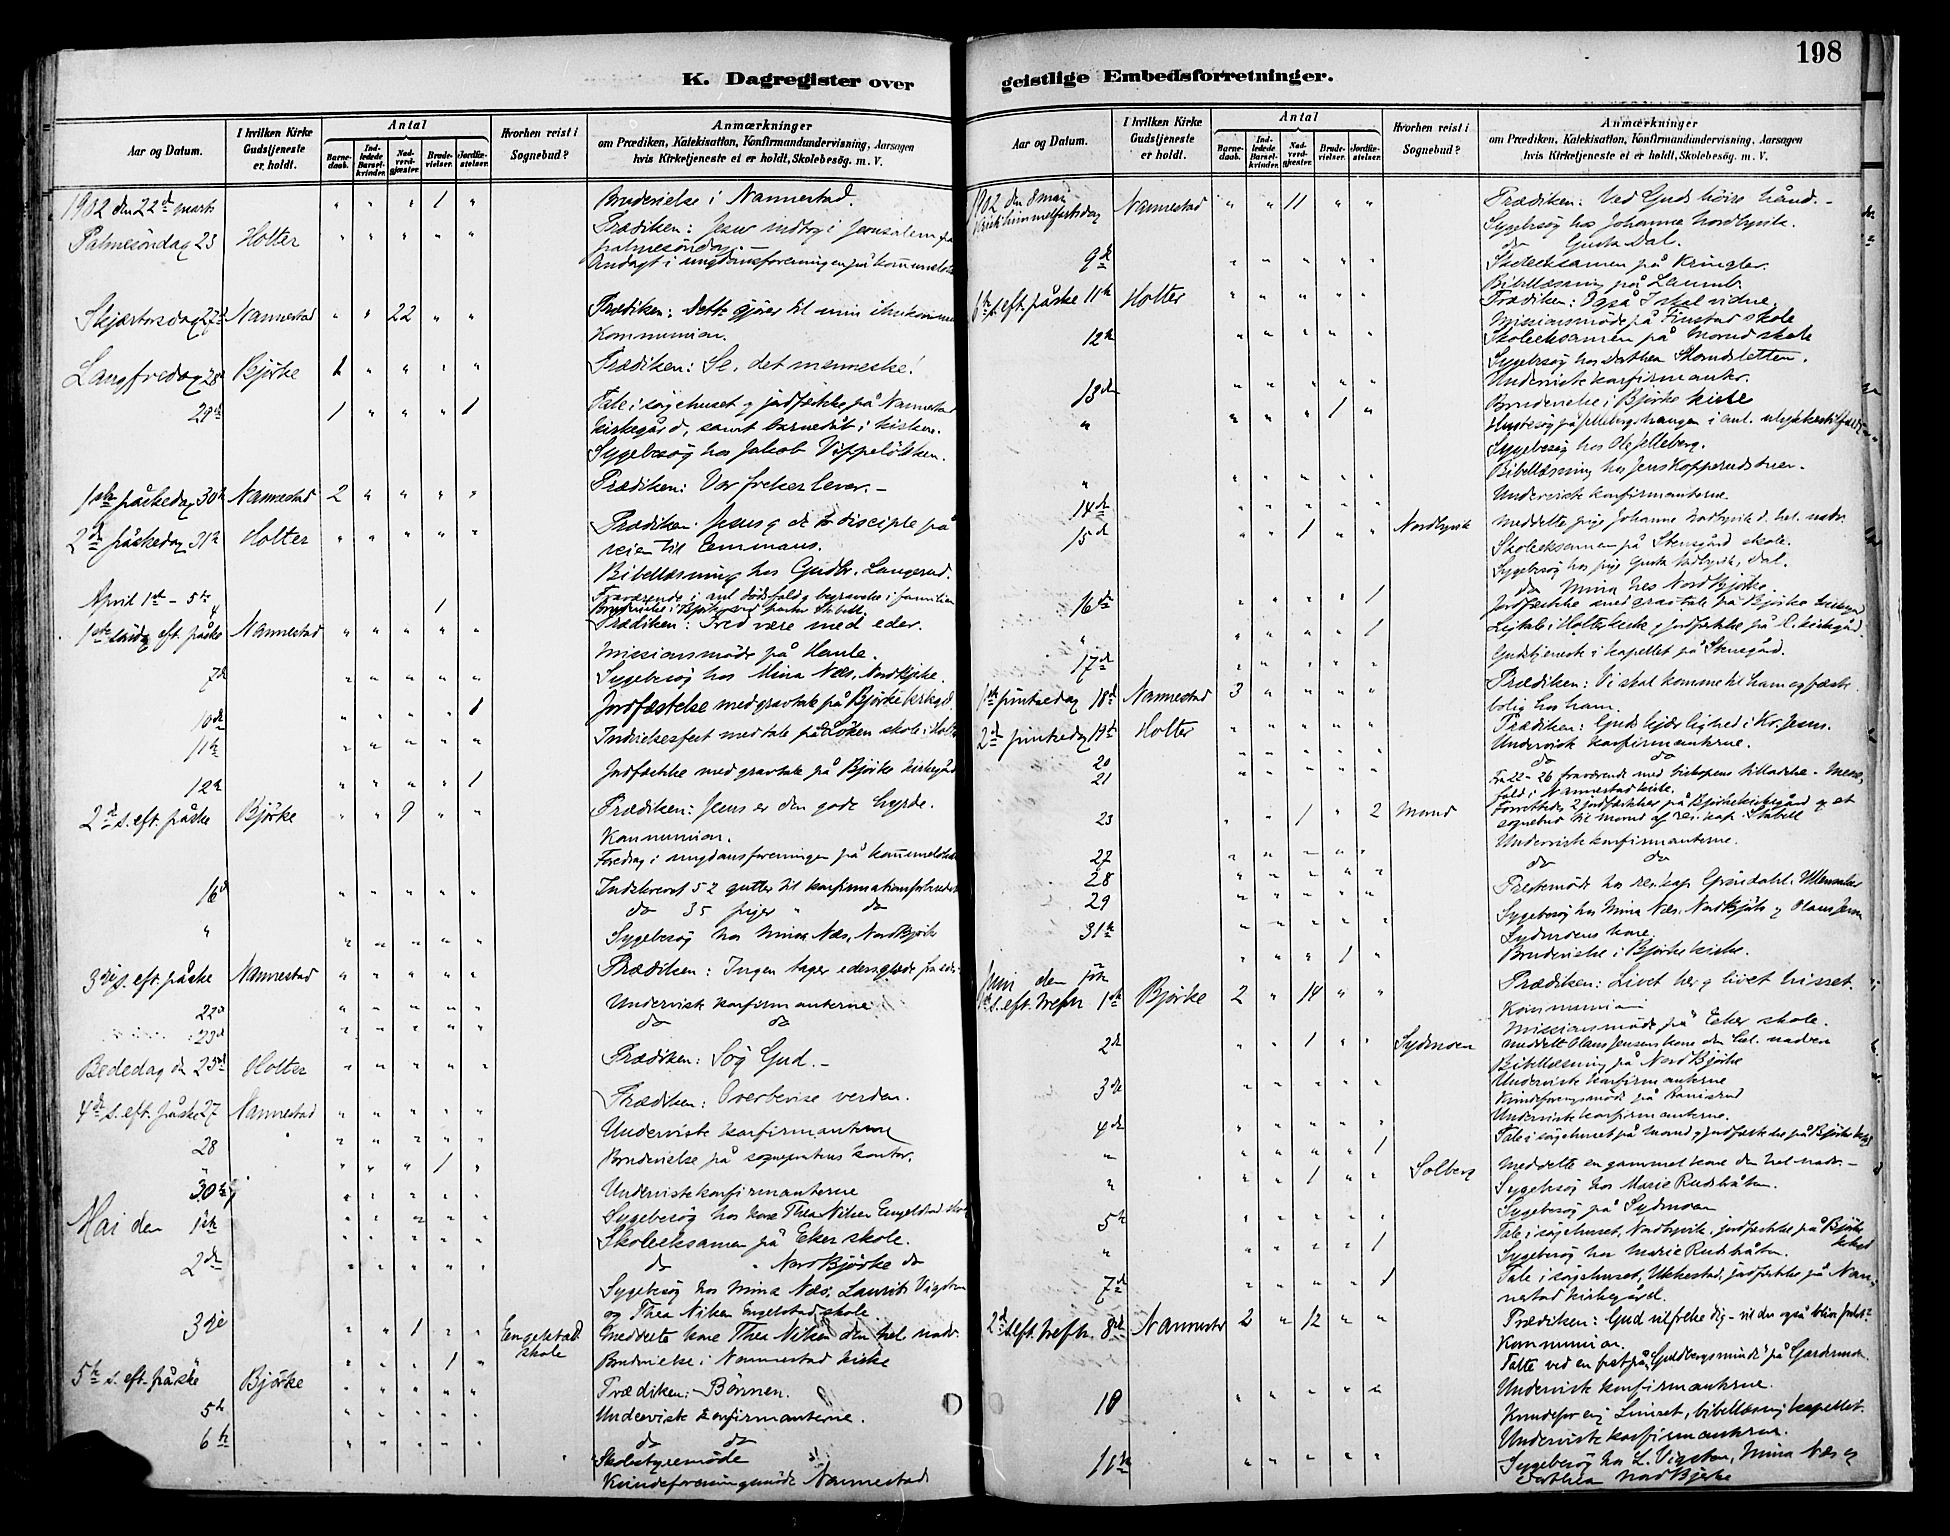 198
K. Dagregister over
Aar og Datum.
I hvilken Kirke Gudstjeneste er holdt.
Antal
Barne-daab.
Ind-ledede Barsel-kvinder.
Nad-verd-gjæster.
Brude-vielser.
Jordfæ-stelser.
Hvorhen reist i Sognebud?
Anmærkninger
om Prædiken, Katekisation, Konfirmandundervisning, Aarsagen
hvis Kirketjeneste ei er holdt, Skolebesög. m. V.
1902 den 22de marts " " " 1 " Brudevielse i Nannestad.
Palmesöndag 23 Holter " " " " " Prædiken: Jesu indtog i Jerusalem
palmesöndag. -
Andagt i ungdomsforeningen på
Skjærtorsdag 27d Nannestad " " 22 " " Prædiken: Dette gjører til min ihukommelse
Kommunion.
Langfredag 28d Bjørke 1 " " " " Prædiken: Se, det menneske!
29de 1 " " " 1 Tale i sørgehuset og jordfæstelse på Nannestad
kirkegård, samt barnedåb i kirken.
Sygebesøg hos Jakob Vippeløkken.
1ste påskedag 30te Nannestad 2 " " " " Prædiken: Vor frelser lever. -
2den påskedag 31te Holter " " " " " Prædiken. Jesus og de to disciple på
veien til Emmaus.
Bibellæsning hos Gudbr. Langerud.
April 1ste - 5te Fraværende i anl. dødsfald og begravelse i familien
4 1 Brudevielse i Bjørke ved pastor Stabell.
1ste søndag eft. påske Nannestad " " " " " Prædiken: Fred være med eder.
Missionsmøde på
7de " " " " " Sygebesøg hos Mina Næs, Nordbjørke.
10de " " " " 1 Jordfæstelse med gravtale på Bjørke kirkegd.
11te " " " " " Indvielsesfest med tale på Løken skole i Holter
12te " " " " 1 Jordfæstelse med gravtale på Bjørke kirkegård
2den s. eft. påske Bjørke " " 9 " " Prædiken: Jesus er den gode hyrde.
Kommunion.
Foredrag i ungdomsforeningen på
16de " " " " " Indskrevet 52 gutter til konfirmationsforberedelse
do 35 piger " do
" " " " " " Sygebesøg hos Mina Næs, Nordbjørke
3die s. eft. påske Nannestad " " " " " Prædiken: Ingen tager eders glæde fra eder
22de " " " " " Underviste konfirmanterne
23de " " " " " do do
Bededag d 25de Holter " " " " " Prædiken: Søg Gud. -
4de s. eft. påske 27 Nannestad " " " " " Prædiken: Overbevise verden.
28 " " " " " Underviste konfirmanterne
" " " 1 " Brudevielse på sognepræstens kontor.
30te " " " " " Underviste konfirmanterne
Mai den 1ste " " " " " Sygebesøg hos kone Thea Nilsen Engelstad skole
" " " " " Skoleeksamen på Eker skole.
2den " " " " " do " Nordbjørke do
Sygebesøg hos Mina Næs, Laurits Vigsten
og Thea Nilsen Engelstad skole
3die " " 1 " " Engelstad skole Meddelte kone Thea Nilsen den hel. nadv.
" " " " 1 " Brudevielse i Nannestad kirke
5te s. eft. påske Bjørke " " " " " Prædiken: - Bønnen.
5te " " " " " Underviste konfirmanterne.
6te " " " " " do do
Skolestyremøde
Kvindeforeningsmøde Nannestad
geistlige Embedsforretninger.
Aar og Datum.
I hvilken Kirke Gudstjeneste er holdt.
Antal
Barne-daab.
Ind-ledede Barsel-kvinder.
Nad-verd-gjæster.
Brude-vielser.
Jordfæ-stelser.
Hvorhen reist i Sognebud?
Anmærkninger
om Prædiken, Katekisation, Konfirmandundervisning, Aarsagen
hvis Kirketjeneste ei er holdt, Skolebesög. m. V.
1902 den 8 mai
Kristi himmelfartsdag Nannestad " " 11 " " Prædiken: Ved Guds høire hånd. -
Sygebesøg hos Johanne Nordbysvik.
do Gusta Dal.
9de " " " " " Skoleeksamen på Kringler.
Bibellæsning på
6te s. eft. påske 11te Holter " " " " " Prædiken: Også I skal vidne.
Missionsmøde på Finstad skole
12te " " " " " Skoleeksamen på Moreud skole
Sygebesøg hos Dorthea
" " " " " Underviste konfirmanter.
13de " " " 1 " Brudevielse i Bjørke kirke
" " " " " Husbesøg på Jelleberghaugen i anl. ulykkestilfælde
Sygebesøg hos Ole Jelleberg.
Bibellæsning hos Jens
14de " " " " " Underviste konfirmanterne
15de " " 1 " " Nordbysvik Meddelte pige Johanne Nordbysvik d. hel. nadv.
Skoleeksamen på Stensgård skole.
Sygebesøg hos pige Gusta Nordbysvik, Dal.
do Mina Næs Nordbjørke.
16de " " " " 1 Jordfæstelse med gravtale på Bjørke kirkegård
" " " " " 1 Ligtale i Holter kirke og jordfæstelse på H. kirkegård.
17de " " " " " Gudstjeneste i kapellet på Stensgård.
1ste pinsedag 18de Nannestad 3 " " " " Prædiken: Vi skal komme til ham og fæste
bolig hos ham.
2den pinsedag 19de Holter " " " " " Prædiken: Guds kjærlighed i Kr. Jesus.
20 " " " " " Underviste konfirmanterne.
21 " " " " " do do
Fra 22 - 26 fraværende med biskopens tilladelse. Messe-
fald i Nannestad kirke.
23 " " 1 " 2 Moreud Forrettedes 2 jordfæstelser på Bjørke kirkegård og et
sognebud til Moreud af res. kap. Stabell
27 " " " " " Underviste konfirmanterne.
28 " " " " " do do
29 " " " " " Prestemøde hos res. kap. Grøndahl, Ullensaker
31te " " " " " Sygebesøg hos Mina Næs, Nordbjørke og Olaus Jensen
Sydmoens kone.
" " " 1 " Brudevielse i Bjørke kirke.
Juni den
1ste s. eft. trefn. 1ste Bjørke 2 " 14 " " Prædiken: Livet her og livet hisset.
Kommunion
Missionsmøde på Eker skole.
2de " " 1 " " Sydmoen Meddelt Olaus Jensens kone den hel. nadver
Bibellæsning på Nordbjørke
3de " " " " " Underviste konfirmanterne
Kvindeforeningsmøde på
4de " " " " " Underviste konfirmanterne.
" " " " " 1 Tale i sørgehuset på Moreud og jordfæstelse på Bjørke kirkegd
" " " 1 " " Solberg Meddelte en gammel kone den hel. nadv. -
Sygebesøg hos Marie Rudshåten.
5te " " " " " Sygebesøg på Sydmoen
" " " " " 1 Tale i sørgehuset, Nordbysvik, jordfæstelse på Bjørke kirkegd
Sygebesøg hos Marie Rudshåten.
7de " " " " 1 Tale i sørgehuset, Ukkestad, jordfæstelse på Nan-
nestad kirkegård.
2den s. eft. trefn. 8de Nannestad 2 " 12 " " Prædiken: Gud vil frelse dig - vil du også blive frelst?
Kommunion.
Talte ved en fest på "Guldbergsminde" på Gardermoen
10 " " " " " Underviste konfirmanterne.
bibellæsning i kapellet.
11te " " " " " Underviste konfirmanterne.
Sygebesøg hos L. Vigsten, Mina Næs og
Dorthea Nordbjørke